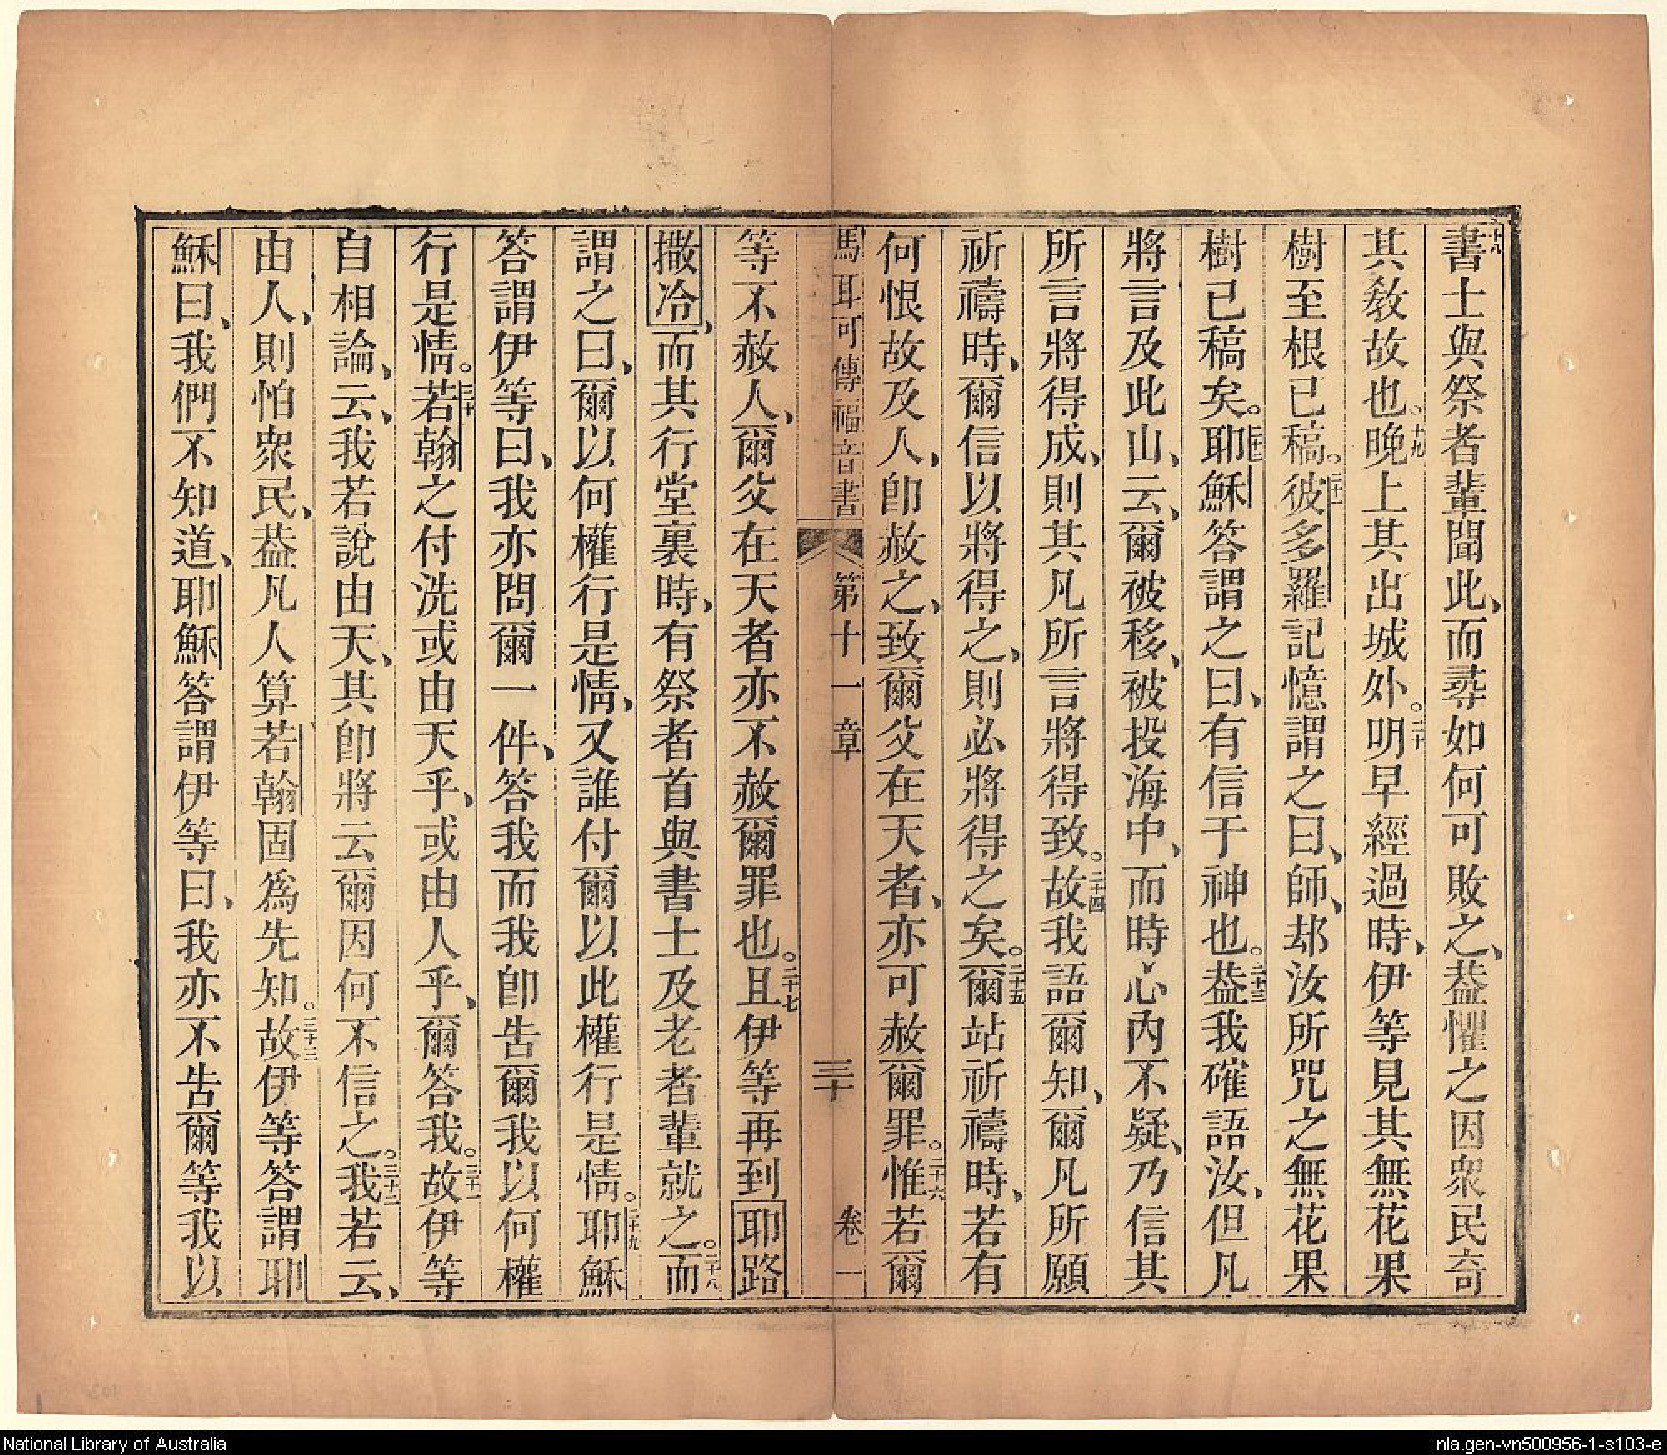 十八書士與祭者輩聞此、而尋如何可敗之、葢懼之因衆民奇
其敎故也、十九晚上其出城外。二十明早經過時、伊等見其無花果
樹至根已稿。二十一彼多羅記憶謂之曰、師、却汝所咒之無花果
樹已稿矣。二十二耶穌答謂之曰、有信于神也。二十三葢我確語汝、但凡
將言及此山、云、爾被移、被投海中、而時心內不疑、乃信其
所言將得成、則其凡所言將得致。二十四故我語爾知、爾凡所願
祈禱時、爾信以將得之、則必將得之矣。二十五爾站祈禱時、若有
何恨故及人、卽赦之、致爾父在天者、亦可赦爾罪。二十六惟若爾
馬耳可傳福音書 第十一章 三十 卷一
等不赦人、爾父在天者亦不赦爾罪也。二十七且伊等再到耶路
撒冷、而其行堂裏時、有祭者首與書士及老者輩就之。二十八而
謂之曰、爾以何權行是情、又誰付爾以此權行是情。二十九耶穌
答謂伊等曰、我亦問爾一件、答我而我卽吿爾我以何權
行是情。三十若翰之付洗或由天乎、或由人乎、爾答我。三十一故伊等
自相論、云、我若說由天、其卽將云爾因何不信之。三十二我若云、
由人、則怕衆民、葢凡人算若翰固爲先知。三十三故伊等答謂耶
穌曰、我們不知道、耶穌答謂伊等曰、我亦不吿爾等我以
National Library of Australia
nla.gen-vn500956-1-s103-e